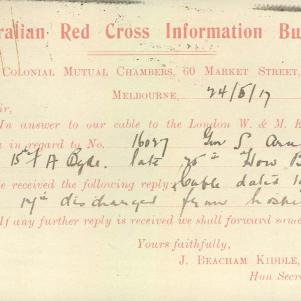 ralian Red Cross Information Bu
Colonial Mutual Chambers, 60 Market Street,
Melbourne, 24/5/17
ir,
In answer to our cable to the London W. & M. E
n in regard to No. 16027 Gnr S
late How B
e received the following reply Cable dated
discharged from hospi
If any further reply is received we shall forward same
Yours faithfully,
J. Beacham Kiddle,
Hon Secre